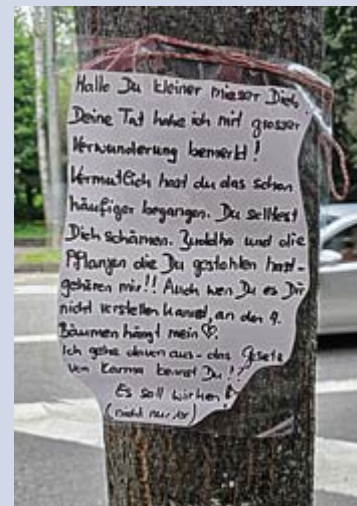 Hallo Du kleiner mieser Dieb,
Deine Tat habe ich mit grosser
Verwunderung bemerkt!
Vermutlich hast du das schon
häufiger begangen. Du solltest
Dich schämen. Buddha und die
Pflanzen die Du gestohlen hast-
gehören mir!! Auch wen Du es Dir
nicht vorstellen kannst, an den 9.
Bäumen hängt mein ♡.
Ich gehe davon aus - das Gesetz
von Karma kennst Du!?
Es soll wirken!
(nicht nur)